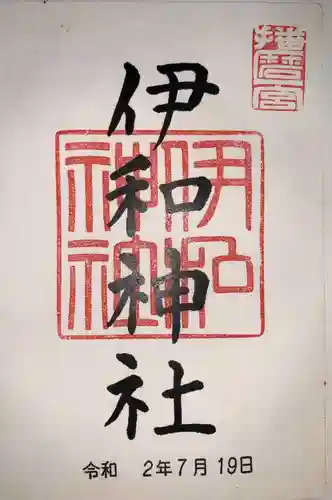 播磨一宮
伊和神社
伊和
神社
令和 2年7月19日